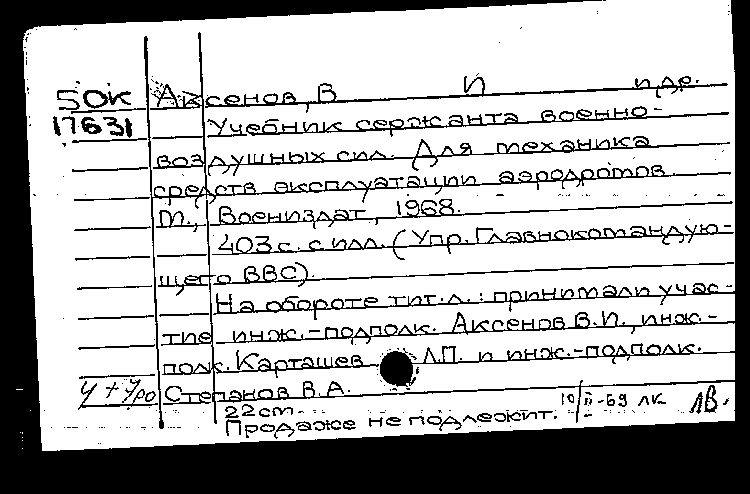 50к Аксенов, В И и др.
17631 Учебник сержанта военно-
воздушных сил. Для механика
средств эксплуатации аэродромов.
М., Воениздат, 1968.
403с. с илл. (Упр. Главнокомандую-
щего ВВС).
На обороте тит.л.: принимали учас-
тие инж.-подполк. Аксенов В.И., инж.-
полк. Карташев Л.П. и инж.-подполк.
Степанов В.А.
22см.
Продаже не подлежит. 10/II-69 ЛК